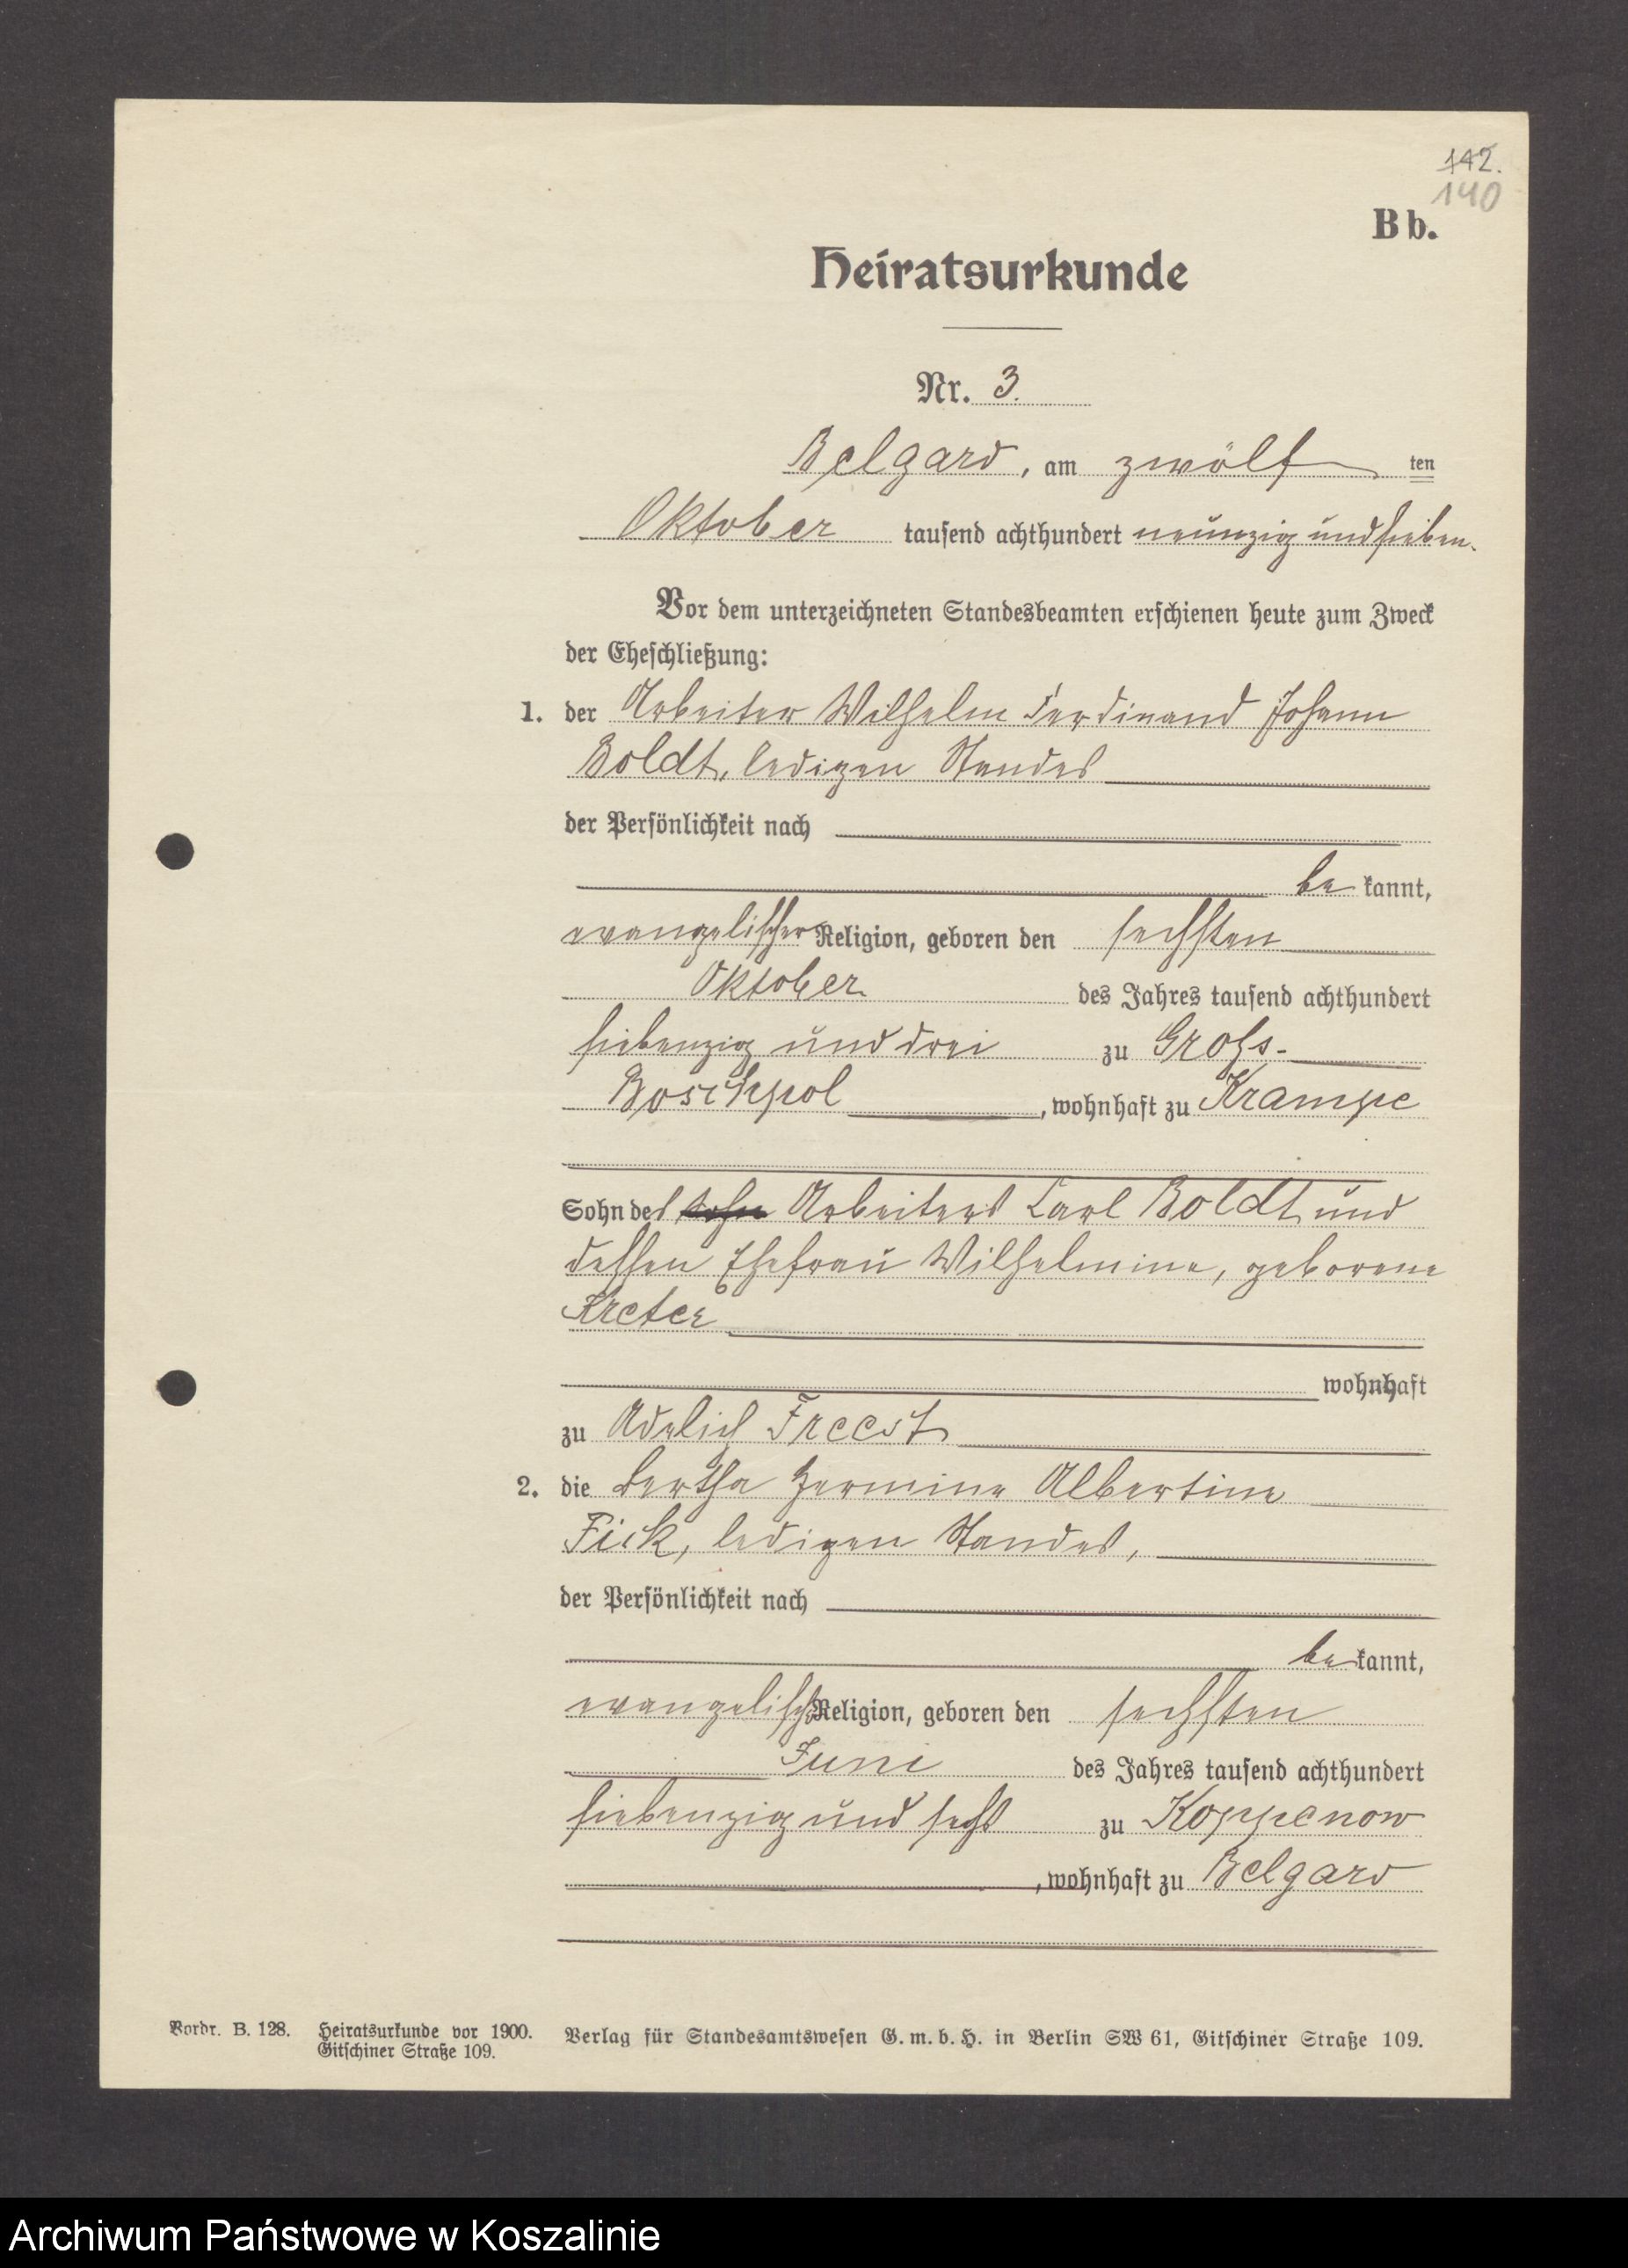 142.
140
B b.
Heiratsurkunde
Nr. 3.
Belgard, am zwölf ten
Oktober tausend achthundert neunzig und sieben.
Vor dem unterzeichneten Standesbeamten erschienen heute zum Zweck
der Eheschließung:
1. der Arbeiter Wilhelm Ferdinand Johann
Boldt, ledigen Standes
der Persönlichkeit nach
be kannt,
evangelischer Religion, geboren den sechsten
Oktober des Jahres tausend achthundert
siebenzig und drei zu Groß-
Boschpol, wohnhaft zu Krampe
Sohn des Arbeiters Carl Boldt und
dessen Ehefrau Wilhelmine, geborene
Kreter
wohnhaft
zu Adelich Freest
2. die Bertha Hermine Albertine
Fick, ledigen Standes,
der Persönlichkeit nach
be kannt,
evangelisch Religion, geboren den sechsten
Juni des Jahres tausend achthundert
siebenzig und sechs zu Koppenow
, wohnhaft zu Belgard
Vordr. B. 128. Heiratsurkunde vor 1900. Verlag für Standesamtswesen G. m. b. H. in Berlin SW 61, Gitschiner Straße 109.
Gitschiner Straße 109.
Archiwum Państwowe w Koszalinie